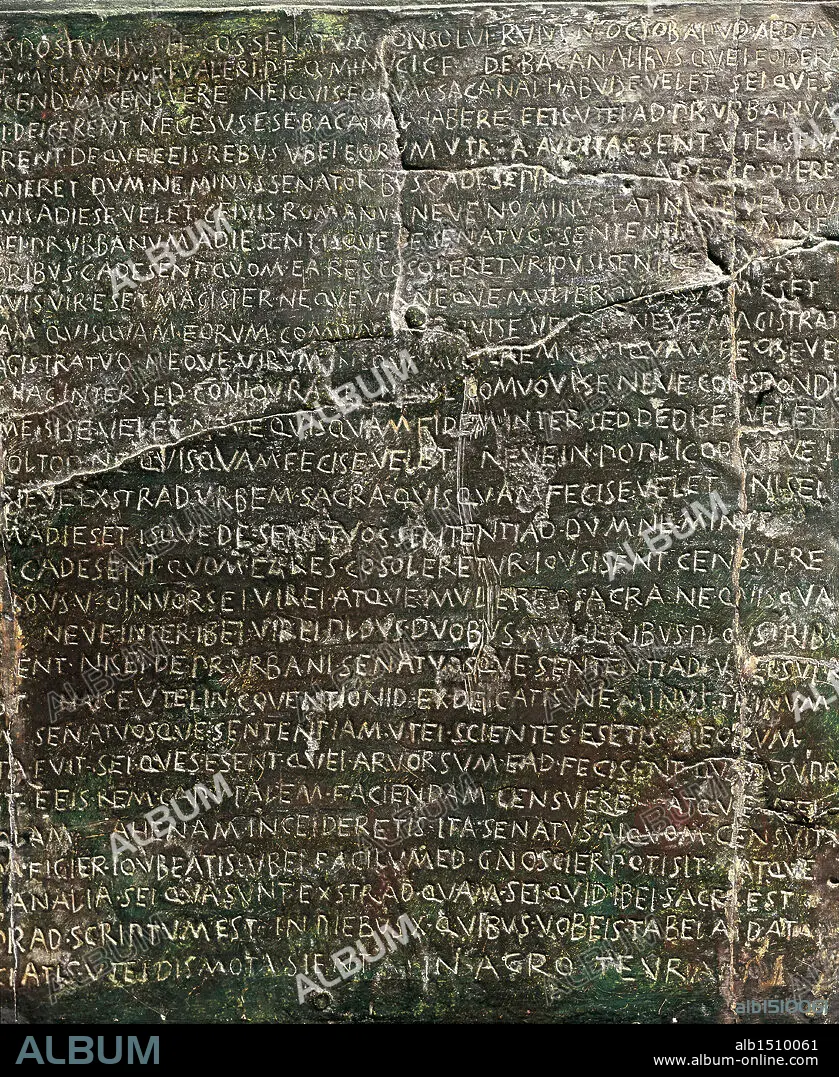 S·POSTVMIVS·L·F·COS SENATVM CONSOLVERVNT·N·OCTOB·APVD·AEDEM
F·M·CLAVDI·M·F VALERI·P·F·Q·MINVCI·C·F· DE·BACANALIBVS·QVEI·FOIDER
CENDVM·CENSVERE NEIQVIS·EORVM·SACANAL·HABVISE·VELET SEI·QVES
I·DEICERENT NECESVS·ESE·BACANAL·HABERE EEIS·VTEI·AD·PR·VRBANVM
RENT·DEQVE·EEIS·REBVS VBEI·EORVM·VTR·A·AVDITA·ESENT·VTEI·SENA
RNERET DVM·NE·MINVS·SENATORBVS·C·ADESENT A·DECOSOLERE
VIS·ADIESE·VELET·CEIVIS·ROMANVS NEVE·NOMINVS·LATIN NEVE·SOCIV
EI·PR·VRBANVM·ADIESENT·ISQVE·DE·SENATVOS·SENTENTIAD NE
ORIBVS·C·ADESENT·QVOM·EA·RES·COSOLERETVR·IOVSISENT
VIS·VIR·ESET·MAGISTER·NEQVE·VIR NEQVE·MVLIER·QVISQVAM·ESET
AM QVISQVAM·EORVM·COMOINEM·HABVISE·VELET NEVE·MAGISTRAT
AGISTRATVO NEQVE·VIRVM·NEQVE·MVLIEREM·QVIQVAM·FECISE·VE
HAC·INTER·SED·CONIOVRASE COMVOVISE NEVE·CONSPONDI
MESISE·VELET NEVE·QVISQVAM·FIDEM·INTER·SED·DEDISE·VELET
OLTOD·NE·QVISQVAM·FECISE·VELET NEVE·IN·POPLICOD·NEVE·I
NEVE·EXSTRAD·VRBEM·SACRA·QVISQVAM·FECISE·VELET NISEI
M·ADIESET ISQVE·DE·SENATVOS·SENTENTIAD·DVM·NE·MINVS
·C·ADESENT·QVOM·EA·RES·COSOLERETVR·IOVSISENT·CENSVERE
LOVS·V·OINVORSEI·VIREI·ATQVE·MVLIERES·SACRA·NE·QVISQVA
NEVE·INTER·IBEI·VIREI·PLOVS·DVOBVS·MVLIERIBVS·PLOVS·TRIB
ENT·NISEI·DE·PR·VRBANI·SENATVOSQVE·SENTENTIAD·VTEI·SVP
HAICE·VTEI·IN·COVENTIONID·EXDEICATIS·NE·MINVS·TRINVM
SENATVOSQVE·SENTENTIAM·VTEI·SCIENTES·ESETIS·EORVM
TA·FVIT·SEI·QVES·ESENT·QVEI·ARVORSVM·EAD·FECISENT·QVAM·SVPR
T·EEIS·REM·CAPVTALEM·FACIENDAM·CENSVERE ATQVE
ALAM AHENAM·INCEIDERETIS·ITA·SENATVS·AIQVOM·CENSVIT
M·FIGIER·IOVBEATIS·VBEI·FACILVMED·GNOSCIER·POTISIT ATQVE
ANALIA·SEI·QVA·SVNT·EXSTRAD·QVAM·SEI·QVID·IBEI·SACRI·EST
PRAD·SCRIPTVM·EST IN·DIEBVS·X·QVIBVS·VOBEIS·TABELAI·DATAI
CIATIS·VTEI·DISMOTA·SIENT IN·AGRO TEVRANO
ALBUM
alb1510061
www.album-online.com